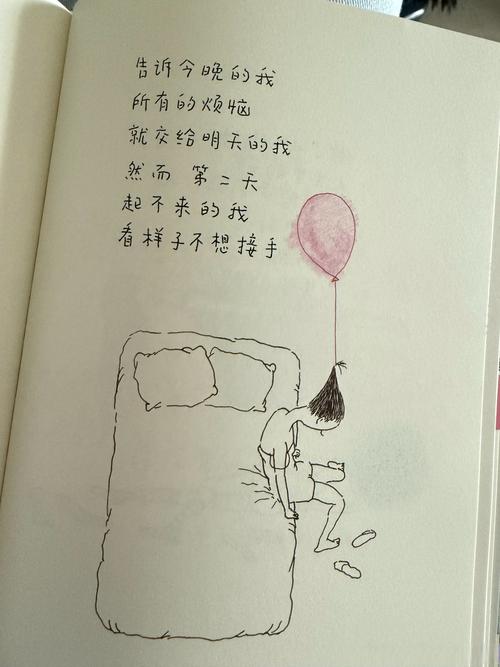 告诉今晚的我
所有的烦恼
就交给明天的我
然而 第二天
起不来的我
看样子不想接手